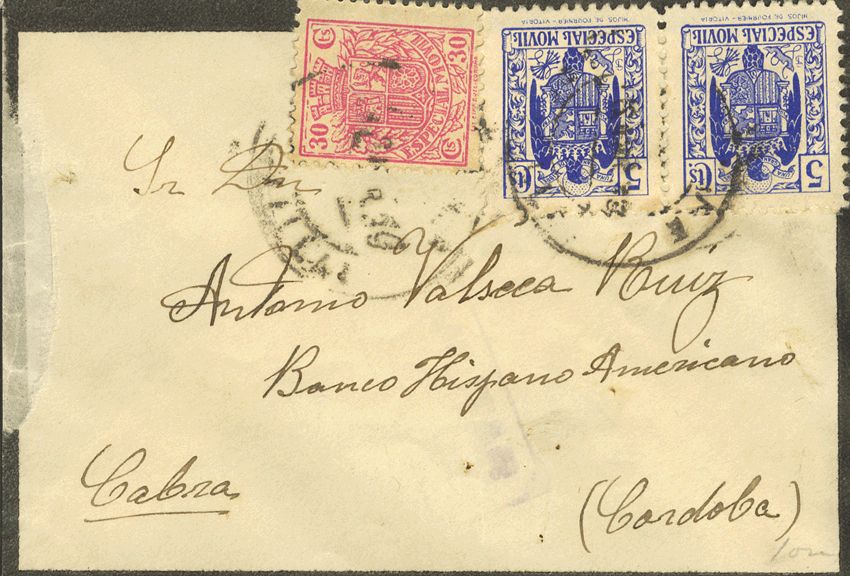 30 Cs 30 Cs
ESPECIAL MOVIL
HIJOS DE FOURNIER - VITORIA
ESPECIAL MOVIL
5 Cs
HIJOS DE FOURNIER - VITORIA
ESPECIAL MOVIL
5 Cs
Sr Dn
Antonio Valseca Ruiz
Banco Hispano Americano
Cabra
(Cordoba)